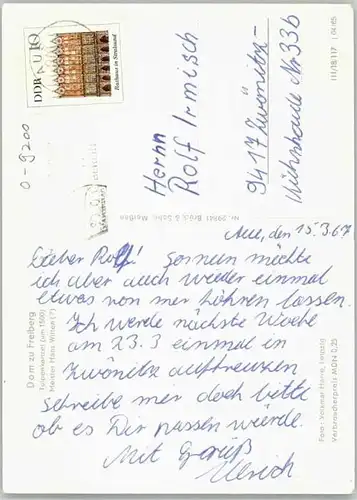 DDR
10
Rathaus in Stralsund
AUE
0-9200
Herrn
Rolf Irmisch
9417 Zwönitz-
Kühnhaide Nr 33b
III/18/117 I 04/65
Nr. 29841 Brück & Sohn, Meißen
Aue, den 15.3.67
Lieber Rolf! Gerneun möchte
ich aber auch wieder einmal
etwas von mir höhren lassen.
Ich werde nächste Woche
am 23.3 einmal in
Zwönitz auftreuzen
schreibe mir doch bitte
ob es Dir passen würde.
Mit Gruß
Ulrich
Dom zu Freiberg
Tulpenkanzel (um 1500)
Meister Hans Witten (?)
Foto: Volkmar Herre, Leipzig
Verbraucherpreis MDN 0,25